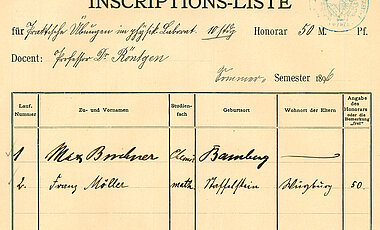 INSCRIPTIONS-LISTE
für Praktische Übungen im physik. Laborat. 10 stdg Honorar 50 M. Pf.
Docent: Professor Dr. Röntgen
Sommer- Semester 1896
Lauf. Nummer Zu- und Vornamen Studien-fach Geburtsort Wohnort der Eltern Angabe des Honorars oder die Bemerkung „frei"
1 Max Chem. Bamberg
2. Franz Möller math. Staffelstein Würzburg 50.